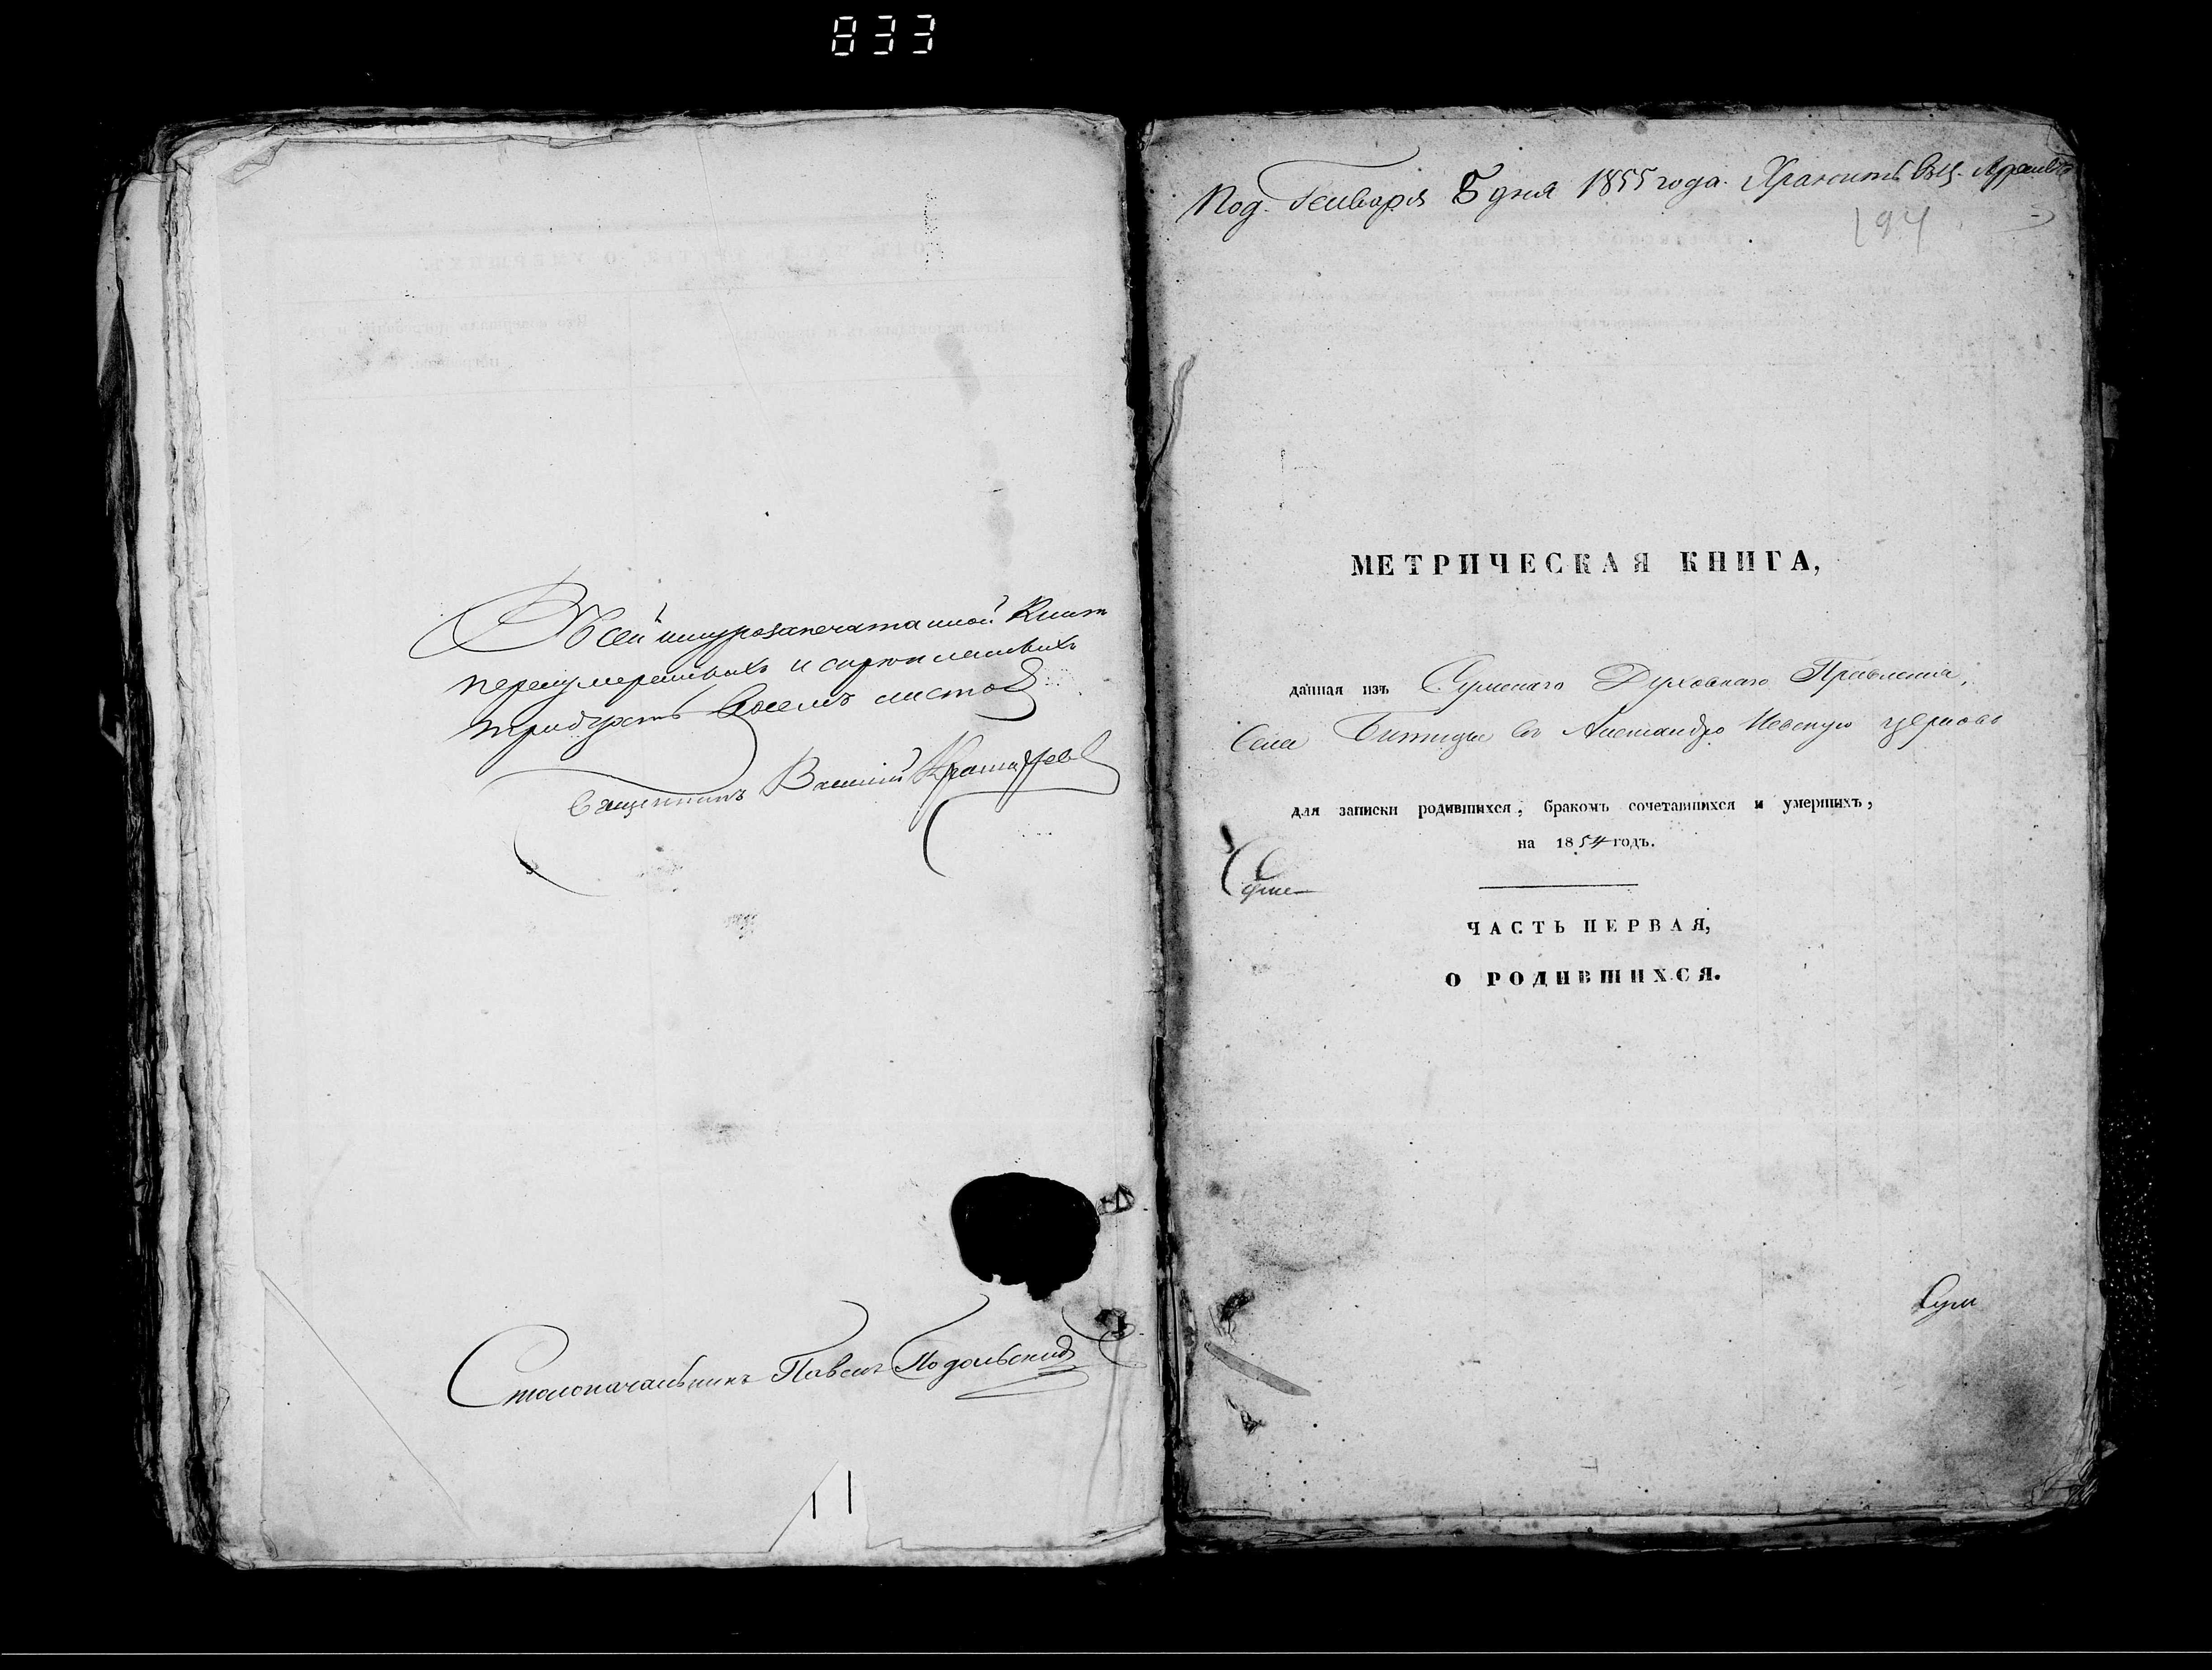 833
Въ сей шнурозапечатанной Книгѣ
перенумерованныхъ и скрепленныхъ
тридцать восемь листовъ
Священникъ Василій
Столоначальникъ Павелъ Подольскій
11
Под. Генваря 8 дня 1855 года. Хранить въ Архивѣ
194
МЕТРИЧЕСКАЯ КНИГА,
данная изъ Сумскаго Духовнаго Правленія,
Села Битицы въ Александро Невскую церковь
для записки родившихся, бракомъ сочетавшихся и умершихъ,
на 1854 годъ.
ЧАСТЬ ПЕРВАЯ,
О РОДИВШИХСЯ.
Сум